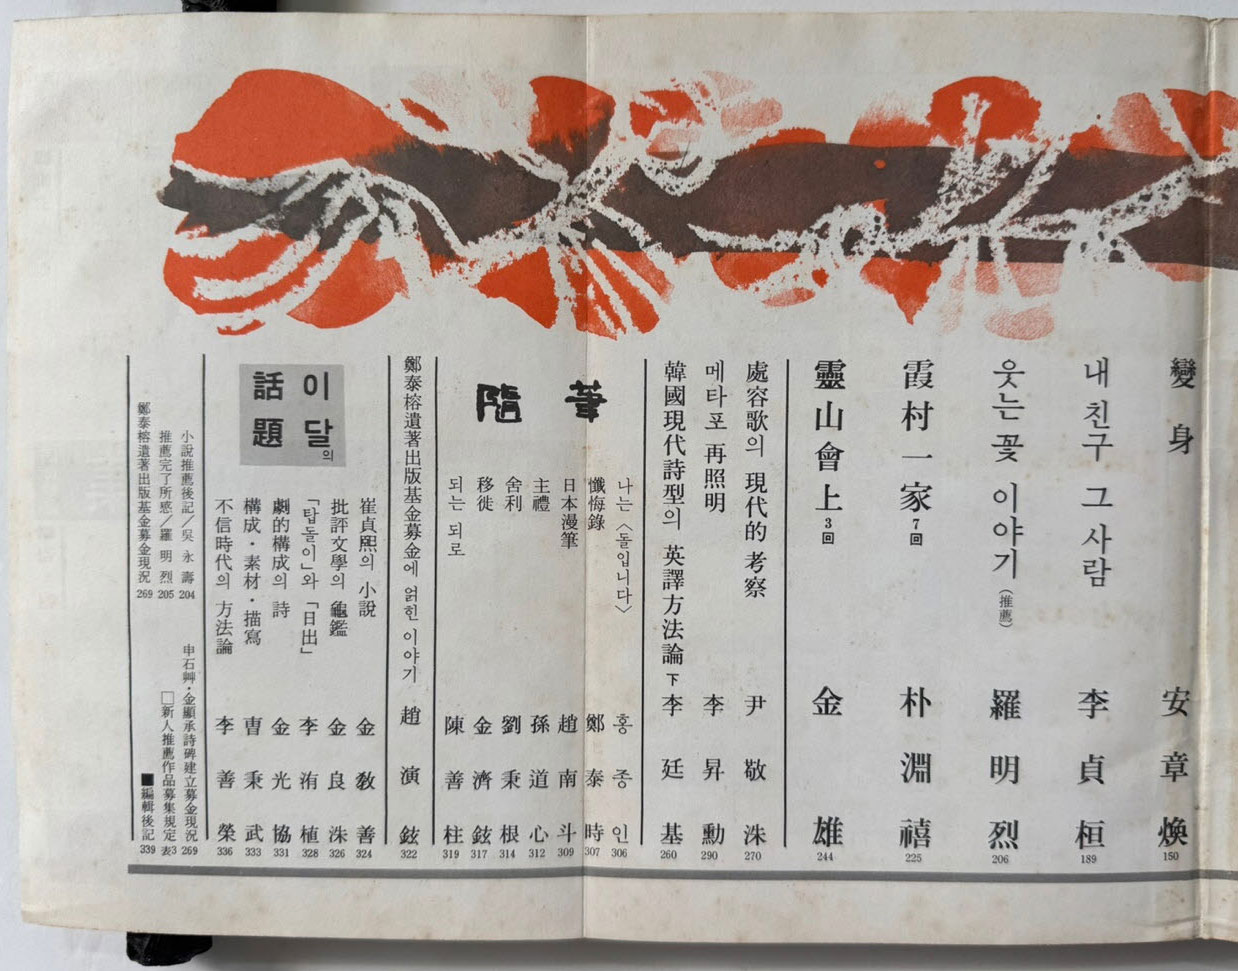 變身 安章煥 150
내 친구 그 사람 李貞桓 189
웃는 꽃 이야기 (推薦) 羅明烈 206
霞村一家 7回 朴淵禧 225
靈山會上 3回 金雄 244
處容歌의 現代的 考察 尹敬洙 270
메타포 再照明 李昇勳 290
韓國現代詩型의 英譯方法論 下 李廷基 260
隨筆
나는 〈돌입니다〉 홍종인 306
懺悔錄 鄭泰時 307
日本漫筆 趙南斗 309
主禮 孫道心 312
舍利 劉秉根 314
移徙 金濟鉉 317
되는 되로 陳善柱 319
鄭泰榕遺著出版基金募金에 얽힌 이야기 趙演鉉 322
이달의 話題
崔貞熙의 小說 金敎善 324
批評文學의 龜鑑 金良洙 326
「탑돌이」와 「日出」 李洧植 328
劇的構成의 詩 金光協 331
構成・素材・描寫 曺秉武 333
不信時代의 方法論 李善榮 336
小說推薦後記／吳永壽 204
申石艸・金顯承詩碑建立募金現況 269
推薦完了所感／羅明烈 205
□新人推薦作品募集規定 表3
鄭泰榕遺著出版基金募金現況 269
■編輯後記 339